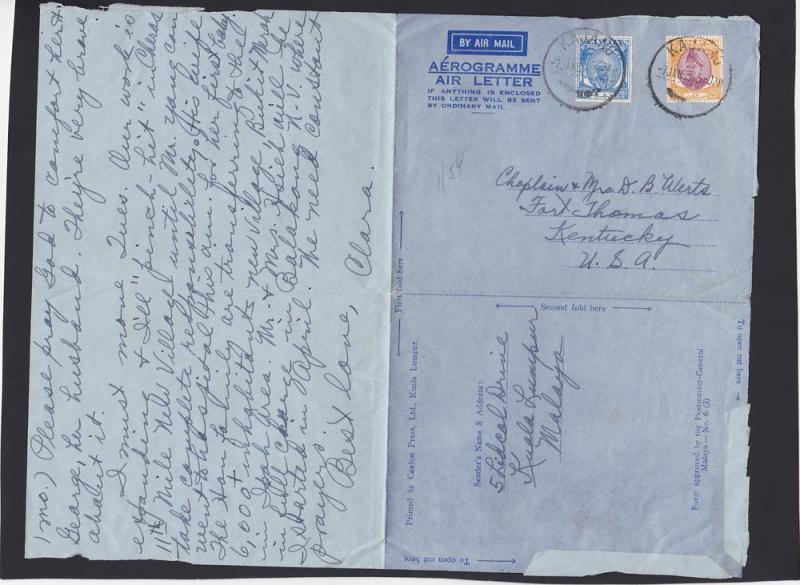 1 mo.) Please pray God to comfort her &
George, her husband. They're very brave
about it.
I must move Tues. Our work is
expanding & I'll "pinch-hit" in Cheras
11th Mile New Village until Mr. Young can
take complete responsibility. His wife
went to hospital this am. for her first baby.
The Ho family are transferring to the
6,000 + inhabitants new village Bukit Merah
in Ipoh area. Mr. & Mrs. Hsieh will be
in full charge in Balakong N.V. where
I started in April. We need constant
prayer.
Best love,
Clara.
BY AIR MAIL
AÉROGRAMME
AIR LETTER
IF ANYTHING IS ENCLOSED
THIS LETTER WILL BE SENT
BY ORDINARY MAIL
KAJANG
KAJANG
1/54
Chaplain & Mrs. D. B. Werts
Fort Thomas
Kentucky
U. S. A.
First fold here
Second fold here
To open cut here
Sender's Name & Address:
5 Lidcol Drive
Kuala Lumpur
Malaya
Printed by Caxton Press, Ltd., Kuala Lumpur.
Form approved by the Postmaster-General
Malaya—No. 6 (3)
To open cut here